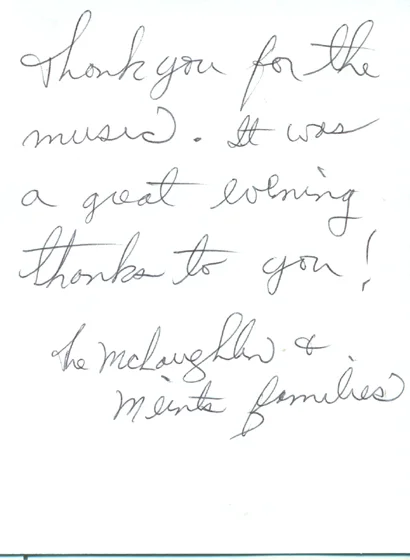 Thank you for the
music. It was
a great evening
thanks to you!
The McLaughlin &
Meints families